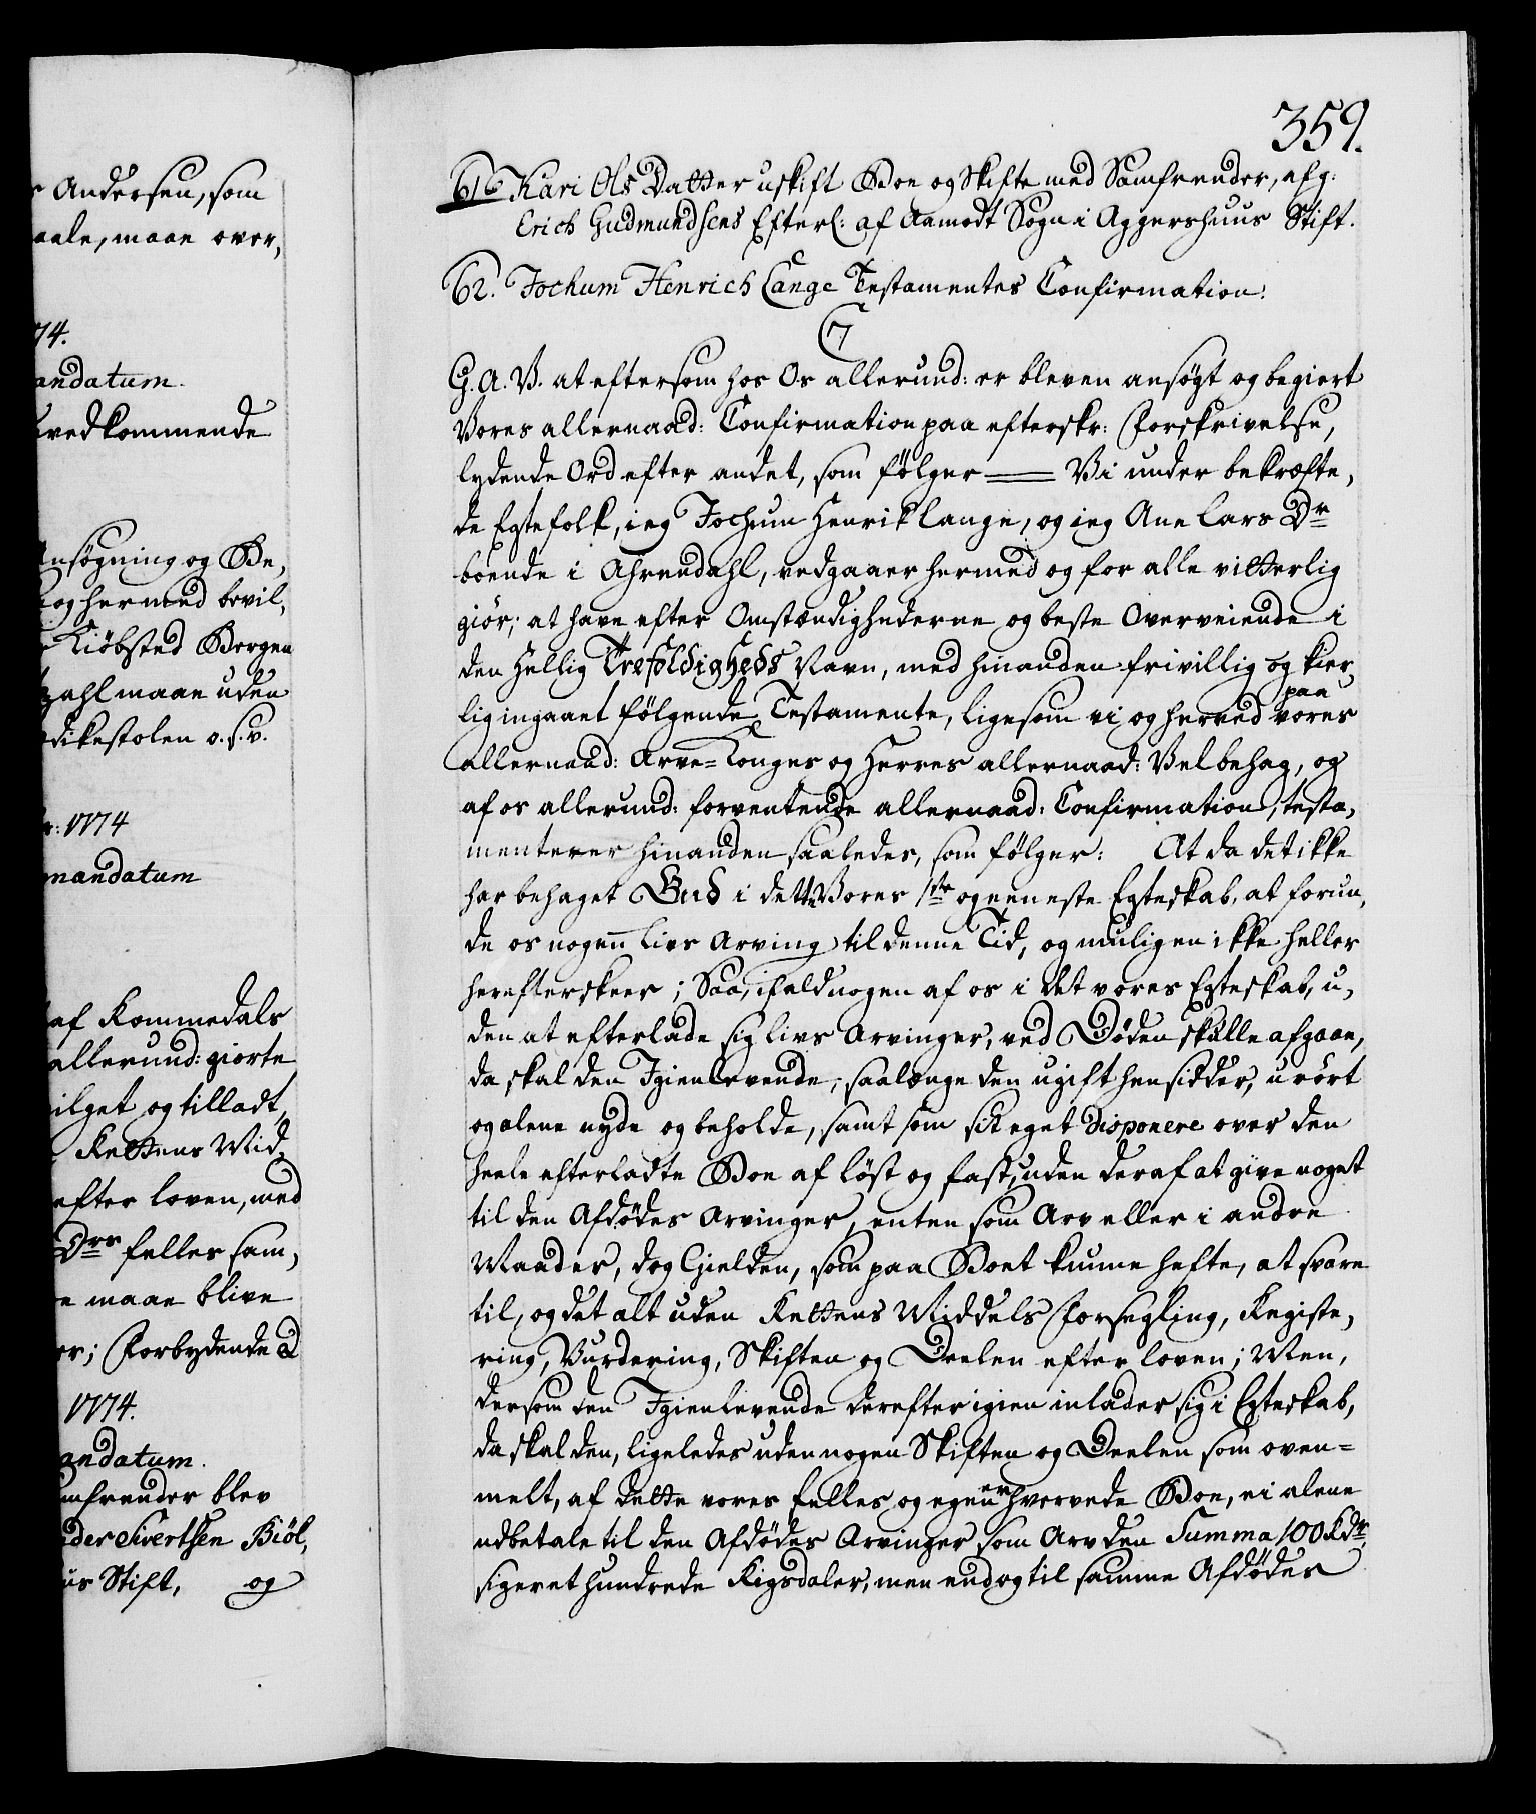 r Andersen, som
aale, maae over,
74.
andatum.
vedkommende
Ansøgning og Be,
og hermed bevil,
Kiøbsted Bergen
zahl maae uden
dikestolen o. s. v.
r: 1774
mandatum
af Rommedals
allerund: giorte
ilget og tilladt,
Rettens Mid,
efter Loven, med
Drs felles sam,
e maae blive
er; Forbydende
1774.
andatum.
mfrender blev
der Sivertsen Biöl,
us Stift, og
359.
61 Kari Ols Datter uskift Boe og Skifte med Samfrender, afg:
Erich Gudmundsens Efterl: af Aamodt Sogn i Aggershuus Stift.
62. Jochum Henrich Lange Testamentes Confirmation.
7
G. A. V. at eftersom hos Os allerund: er bleven ansøgt og begiert
Vores allernaad: Confirmation paa efterskr: Forskrivelse,
lydende Ord efter andet, som følger == Vi under bekræfte,
de Egtefolk, ieg Jochum Henrik Lange, og ieg Ane Lars Dr
boende i Ahrendahl, vedgaaer hermed og for alle vitterlig
giör; at have efter Omstændighederne og beste Overveiende i
den Hellig Trefoldigheds Navn, med hinanden frivillig og kier,
lig ingaaet følgende Testamente, ligesom vi og herved paa vores
allernaad: Arve=Konges og Herres allernaad: Velbehag, og
af os allerund: forventende allernaad: Confirmation, testa,
menterer hinanden saaledes, som følger: At da det ikke
har behaget Gud i dette Vores 1ste og eeneste Egteskab, at forun,
de os nogen Livs Arving til denne Tid, og muligen ikke heller
herefter skeer; Saa, ifald nogen af os i det vores Egteskab, u,
den at efterlade sig Livs Arvinger, ved Døden skulle afgaae,
da skal den Igienlevende, saalænge den ugift hensidder, urört
og alene nyde og beholde, samt som sit eget disponere over den
heele efterladte Boe af løst og fast, uden deraf at give noget
til den Afdødes Arvinger, enten som Arv eller i andre
Maader, dog Gielden, som paa Boet kunne hefte, at svare
til, og det alt uden Rettens Middels Forsegling, Registe,
ring, Vurdering, Skiften og Deelen efter Loven; Men,
dersom den Igienlevende derefter igien inlader sig i Egteskab,
da skal den, ligeledes uden nogen Skiften og Deelen som oven=
melt, af dette vores felles og egen erhvervede Boe, ei alene
udbetale til den Afdødes Arvinger som Arv den Summa 100 Rdr,
siger et hundrede Rigsdaler, men endog til samme Afdødes